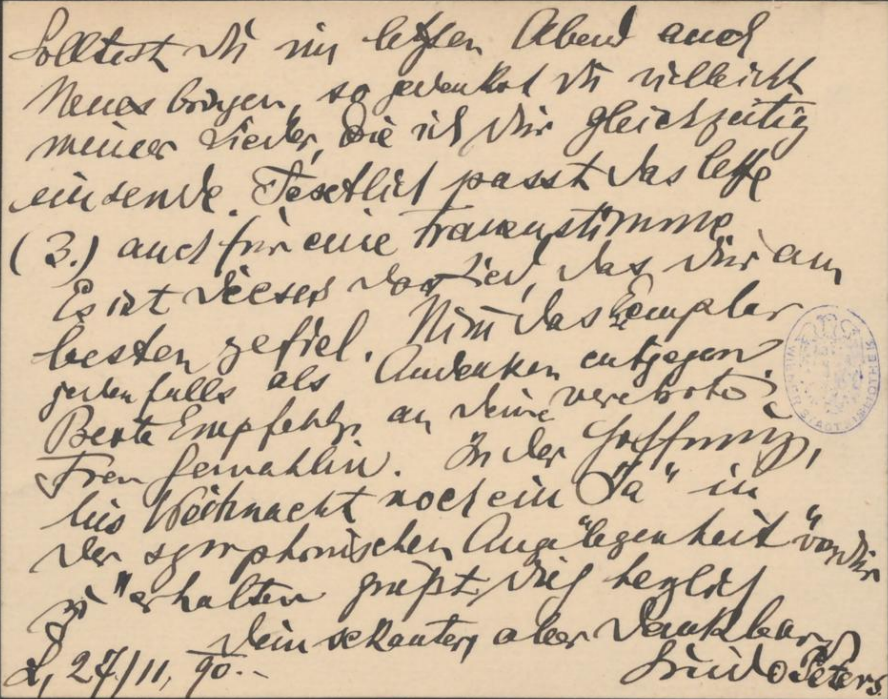 Solltest Du im letzten Abend auch
Neues bringen, so gedenkst Du vielleicht
meiner Lieder, die ich Dir gleichzeitig
einsende. Textlich passt das letzte
(3.) auch für eine Frauenstimme.
Es ist dieses das Lied, das Dir am
besten gefiel. Nimm das Exemplar
jedenfalls als Andenken entgegen
Beste Empfehlg an Deine verehrte
Frau Gemahlin. In der Hoffnung,
bis Weihnacht noch ein "Ja" in
der symphonischen Angelegenheit von Dir
zu erhalten grüßt Dich herzlich
Dein aber dankbarer
Guido Peters
L, 27/11, 90.